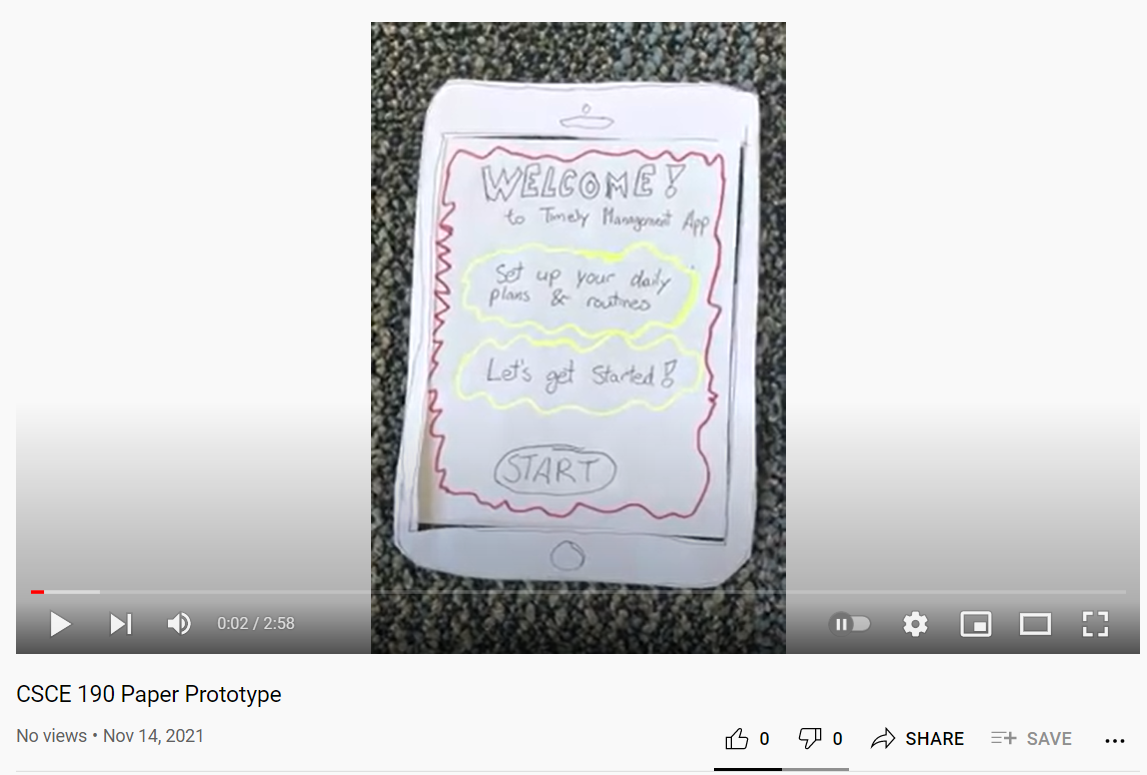 WELCOME!
to Timely Management App
Set up your daily
plans & routines
Let's get Started!
START
0:02 / 2:58
CSCE 190 Paper Prototype
No views • Nov 14, 2021
0
0
SHARE
SAVE